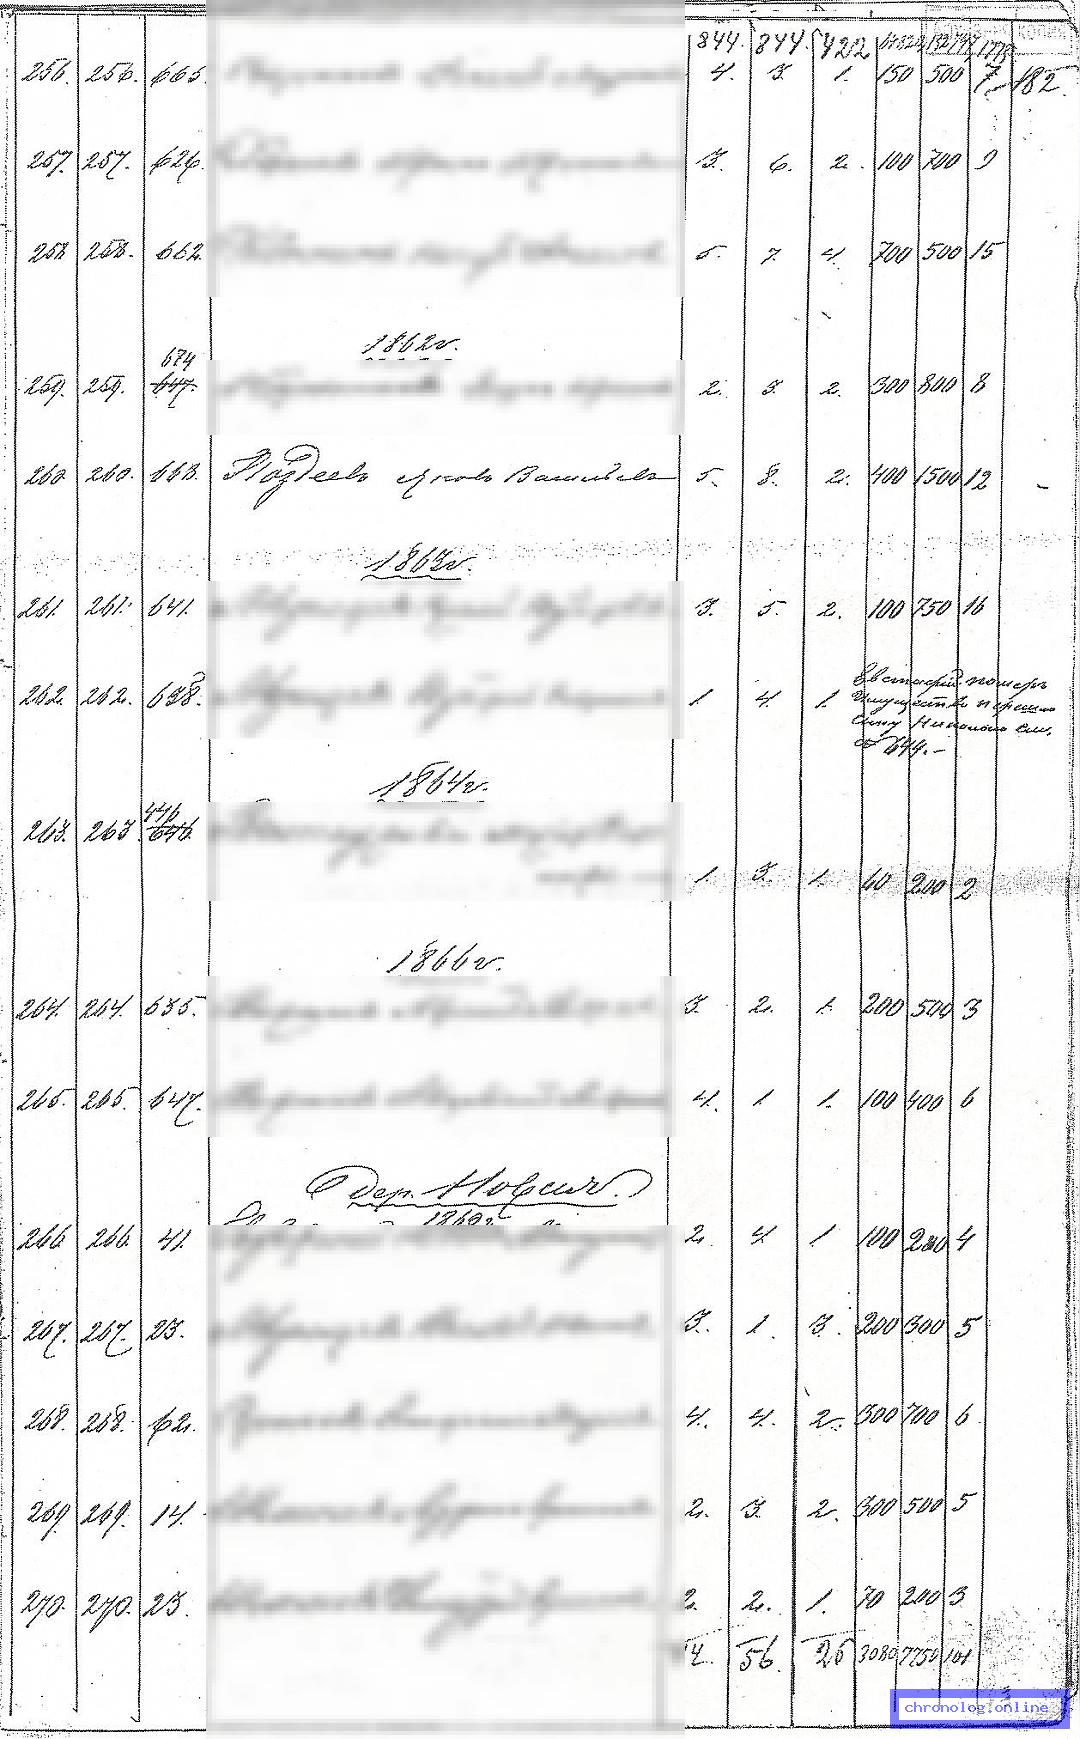 844. 844. 422
256. 256. 665. 4. 3. 1. 150 500 7 182
257. 257. 626. 3. 6. 2. 100 700 9
258 258. 662. 5. 7. 4. 700 500 15
1862г.
674
259. 259. 647. 2. 3. 2. 300 800 8
260 260. 668. Поздеевъ Яковъ Васильевъ 5. 8. 2. 400 1500 12
1863г.
261. 261. 641. 3. 5. 2. 100 750 16
262. 262. 638. 1. 4. 1.
Евстафій померъ
имущество перешло
сыну Николаю см.
№ 644.
1864г.
446
263. 263 646.
1. 3. 1. 60 200 2
1866г.
264. 264. 635. 3. 2. 1. 200 500 3
265. 265. 647. 4. 1. 1. 100 400 6
дер.
1862г.
266 266. 41. 2. 4. 1. 100 200 4
267. 267. 23. 3. 1. 3. 200 300 5
268. 268. 62. 4. 4. 2. 300 700 6
269. 269. 14. 2. 3. 2. 300 500 5
270. 270. 23. 2. 2. 1. 70 200 3
56. 26 3080 7750 101
chronolog.online